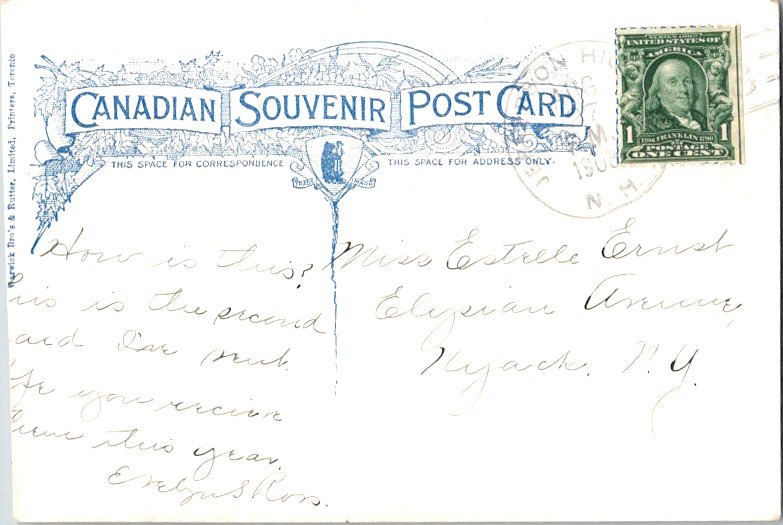 CANADIAN SOUVENIR POST CARD
THIS SPACE FOR CORRESPONDENCE
THIS SPACE FOR ADDRESS ONLY.
TRADE MARK
Warwick Bro's & Rutter, Limited, Printers, Toronto
SERIES 1902
UNITED STATES OF
AMERICA
1 1706 FRANKLIN 1790 1
POSTAGE
ONE CENT
AUG
M.
1908
N. H.
How is this?
his is the second
ard I've sent.
you recieve
this year.
Evelyn S Ross.
Miss Estelle Ernst
Elysian Avenue,
Nyack, N.Y.